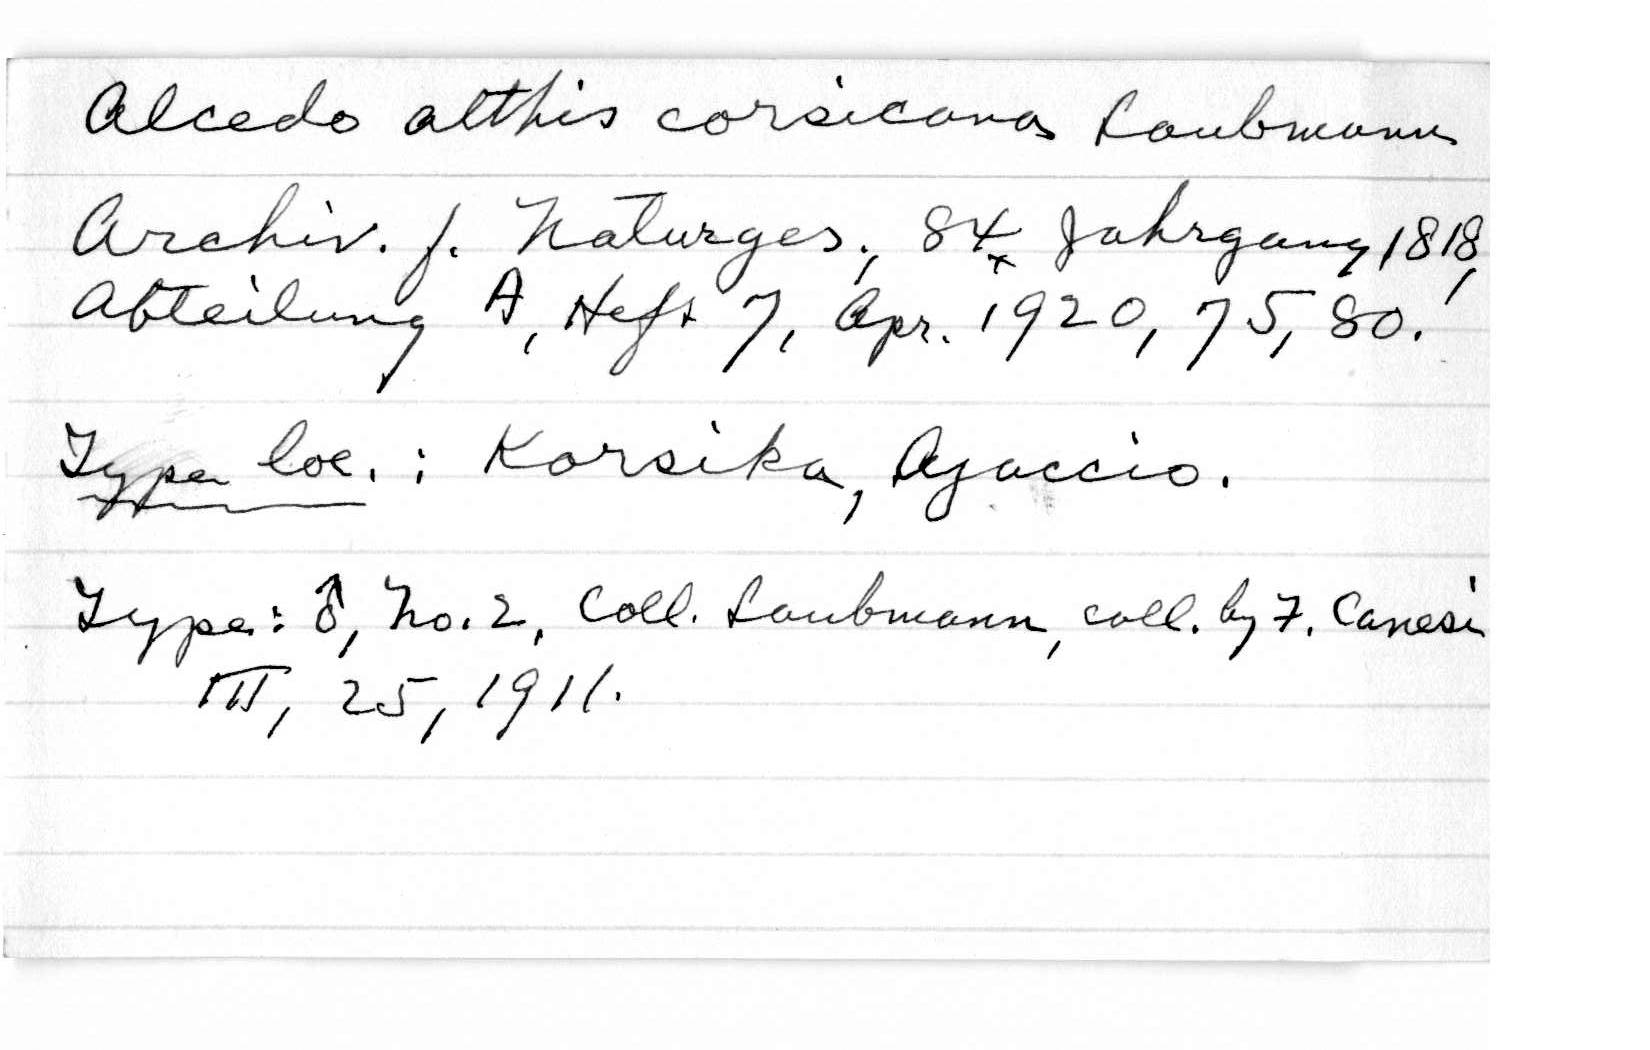 Alcedo atthis corsicana Laubmann
Archiv. f. Naturges., 84 Jahrgang 1818,
Abteilung A, Heft 7, Apr. 1920, 75, 80.
Type loc. : Korsika, Ajaccio.
Type: ♂, No. 2, Coll. Laubmann, coll. by F. Canesi
III, 25, 1911.